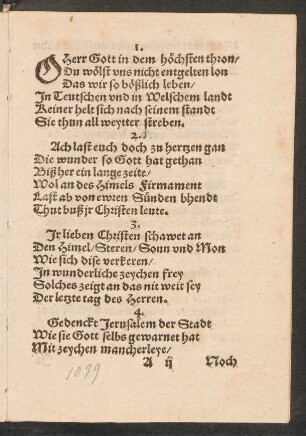 1.
O Herr Gott in dem höchsten thron/
Du wölst vns nicht entgelten lon
Das wir so bößlich leben/
In Teutschen vnd in Welschem landt
Keiner helt sich nach seinem standt
Sie thun all weytter streben.
2.
Ach last euch doch zu hertzen gan
Die wunder so Gott hat gethan
Bißher ein lange zeite/
Wol an des Himels Firmament
Last ab von ewren Sünden bhendt
Thut bußjr Christen leute.
3.
Ir lieben Christen schawet an
Den Himel/ Steren/ Sonn vnd Mon
Wie sich dise verkeren/
In wunderliche zeychen frey
Solches zeigt an das nit weit sey
Der letzte tag des Herren.
4.
Gedenckt Jerusalem der Stadt
Wie sie Gott selbs gewarnet hat
Mit zeychen mancherleye/
A ij Noch
1099